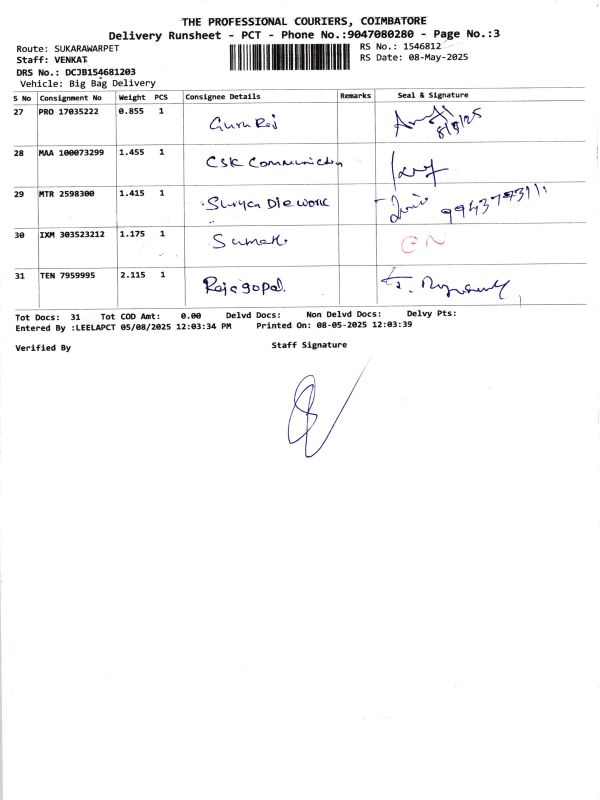 THE PROFESSIONAL COURIERS, COIMBATORE
Delivery Runsheet - PCT - Phone No.:9047080280 - Page No.:3
Route: SUKARAWARPET
RS No.: 1546812
Staff: VENKAT
RS Date: 08-May-2025
DRS No.: DCJB154681203
Vehicle: Big Bag Delivery
S No Consignment No Weight PCS Consignee Details Remarks Seal & Signature
27 PRO 17035222 0.855 1 Guru Raj 8/5/25
28 MAA 100073299 1.455 1 CSK Communiction
29 MTR 2598300 1.415 1 Surya Die work
30 IXM 303523212 1.175 1
31 TEN 7959995 2.115 1 Rajagopal.
Tot Docs: 31 Tot COD Amt: 0.00 Delvd Docs: Non Delvd Docs: Delvy Pts:
Entered By :LEELAPCT 05/08/2025 12:03:34 PM Printed On: 08-05-2025 12:03:39
Verified By Staff Signature